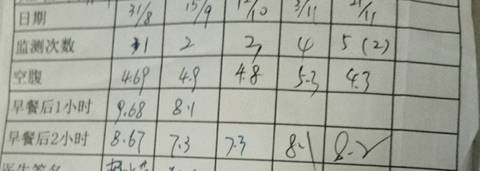 日期 31/8 15/9 12/10 3/11 21/11
监测次数 1 2 3 4 5 (2)
空腹 4.69 4.9 4.8 5.3 4.3
早餐后1小时 9.68 8.1
早餐后2小时 8.67 7.3 7.3 8.1 8.2
医生签名